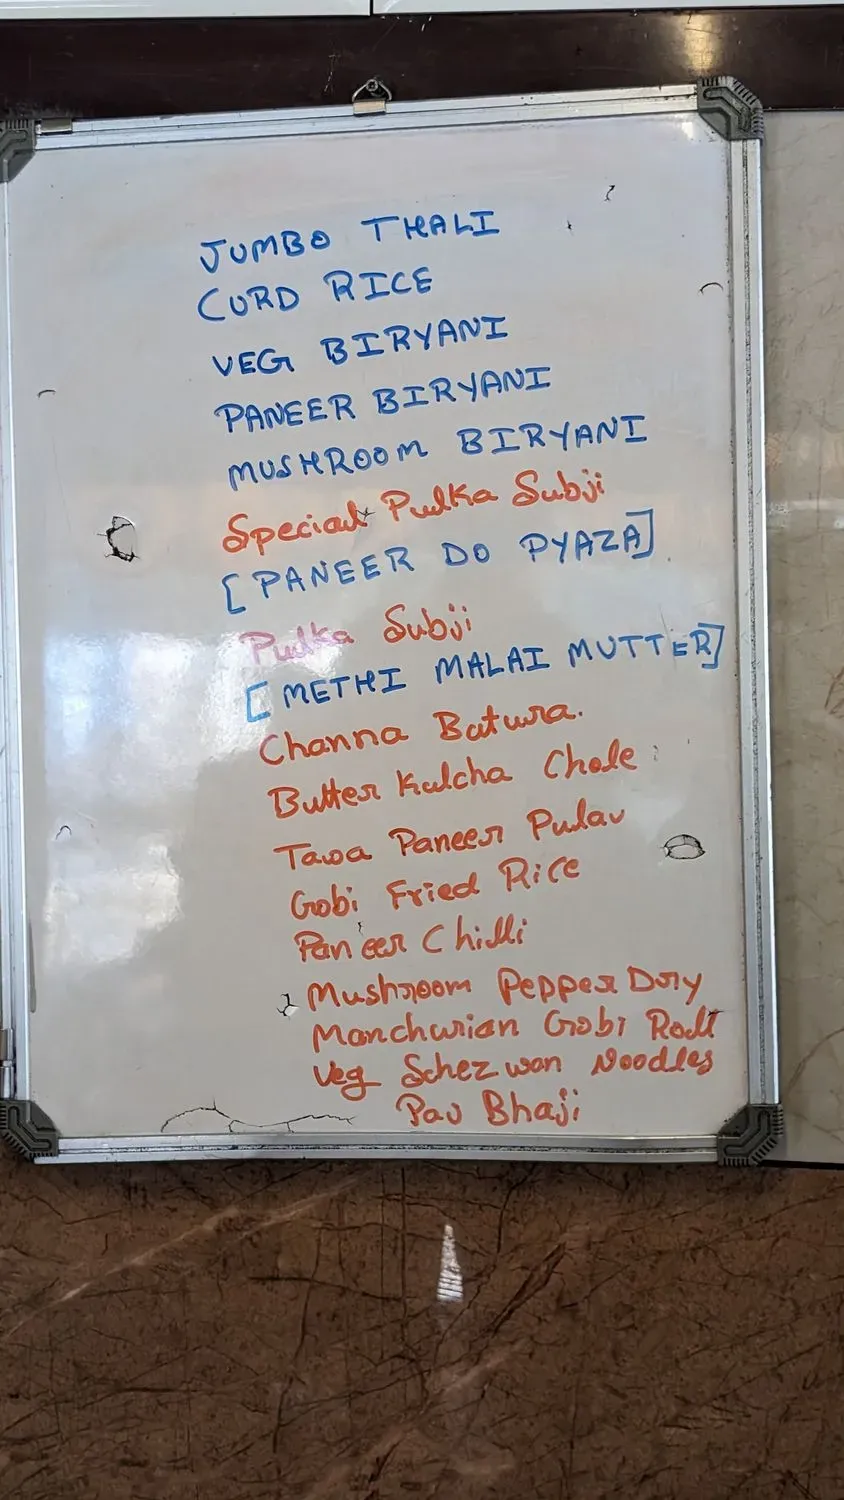 JUMBO THALI
CURD RICE
VEG BIRYANI
PANEER BIRYANI
MUSHROOM BIRYANI
Special Pulka Subji
[PANEER DO PYAZA]
Pulka Subji
[METHI MALAI MUTTER]
Channa Batura.
Butter Kulcha Chole
Tawa Paneer Pulav
Gobi Fried Rice
Paneer Chilli
Mushroom Pepper Dry
Manchurian Gobi Roll
Veg Schezwan Noodles
Pav Bhaji